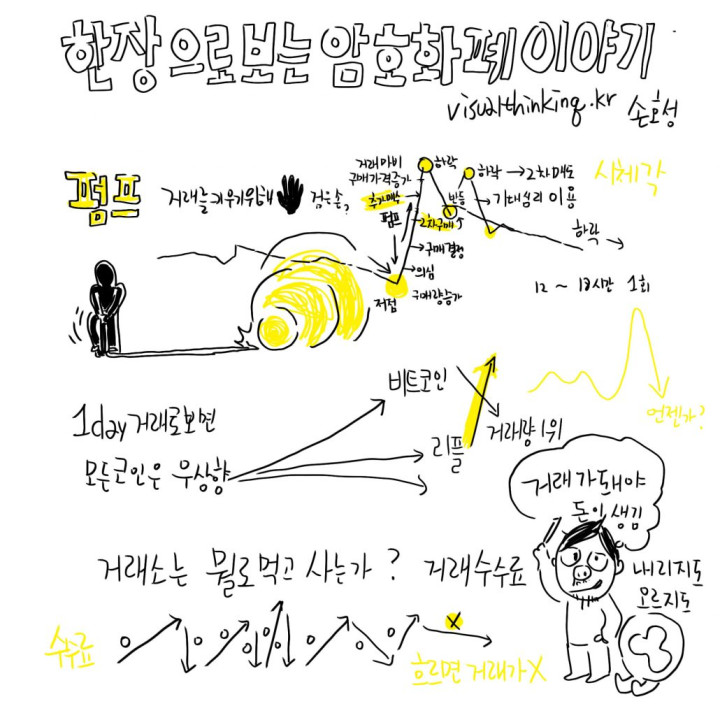 한장으로보는 암호화폐 이야기
visualthinking.kr 손호성
펌프
거래를키우기위해 검은손,
거래마비
구매가격증가
추가매수
펌프
하락
하락 → 2차 매도
반등
기대심리 이용
2차구매↑
구매결정
의심
저점
구매량증가
시체각
하락
12 ~ 18시간 1회
언젠가?
1day 거래로보면
모든코인은 우상향
비트코인
리플
거래량 1위
거래가돼야
돈이 생김
거래소는 뭘로먹고 사는가? 거래수수료
내리지도
오르지도
수수료
X
흐르면 거래가X